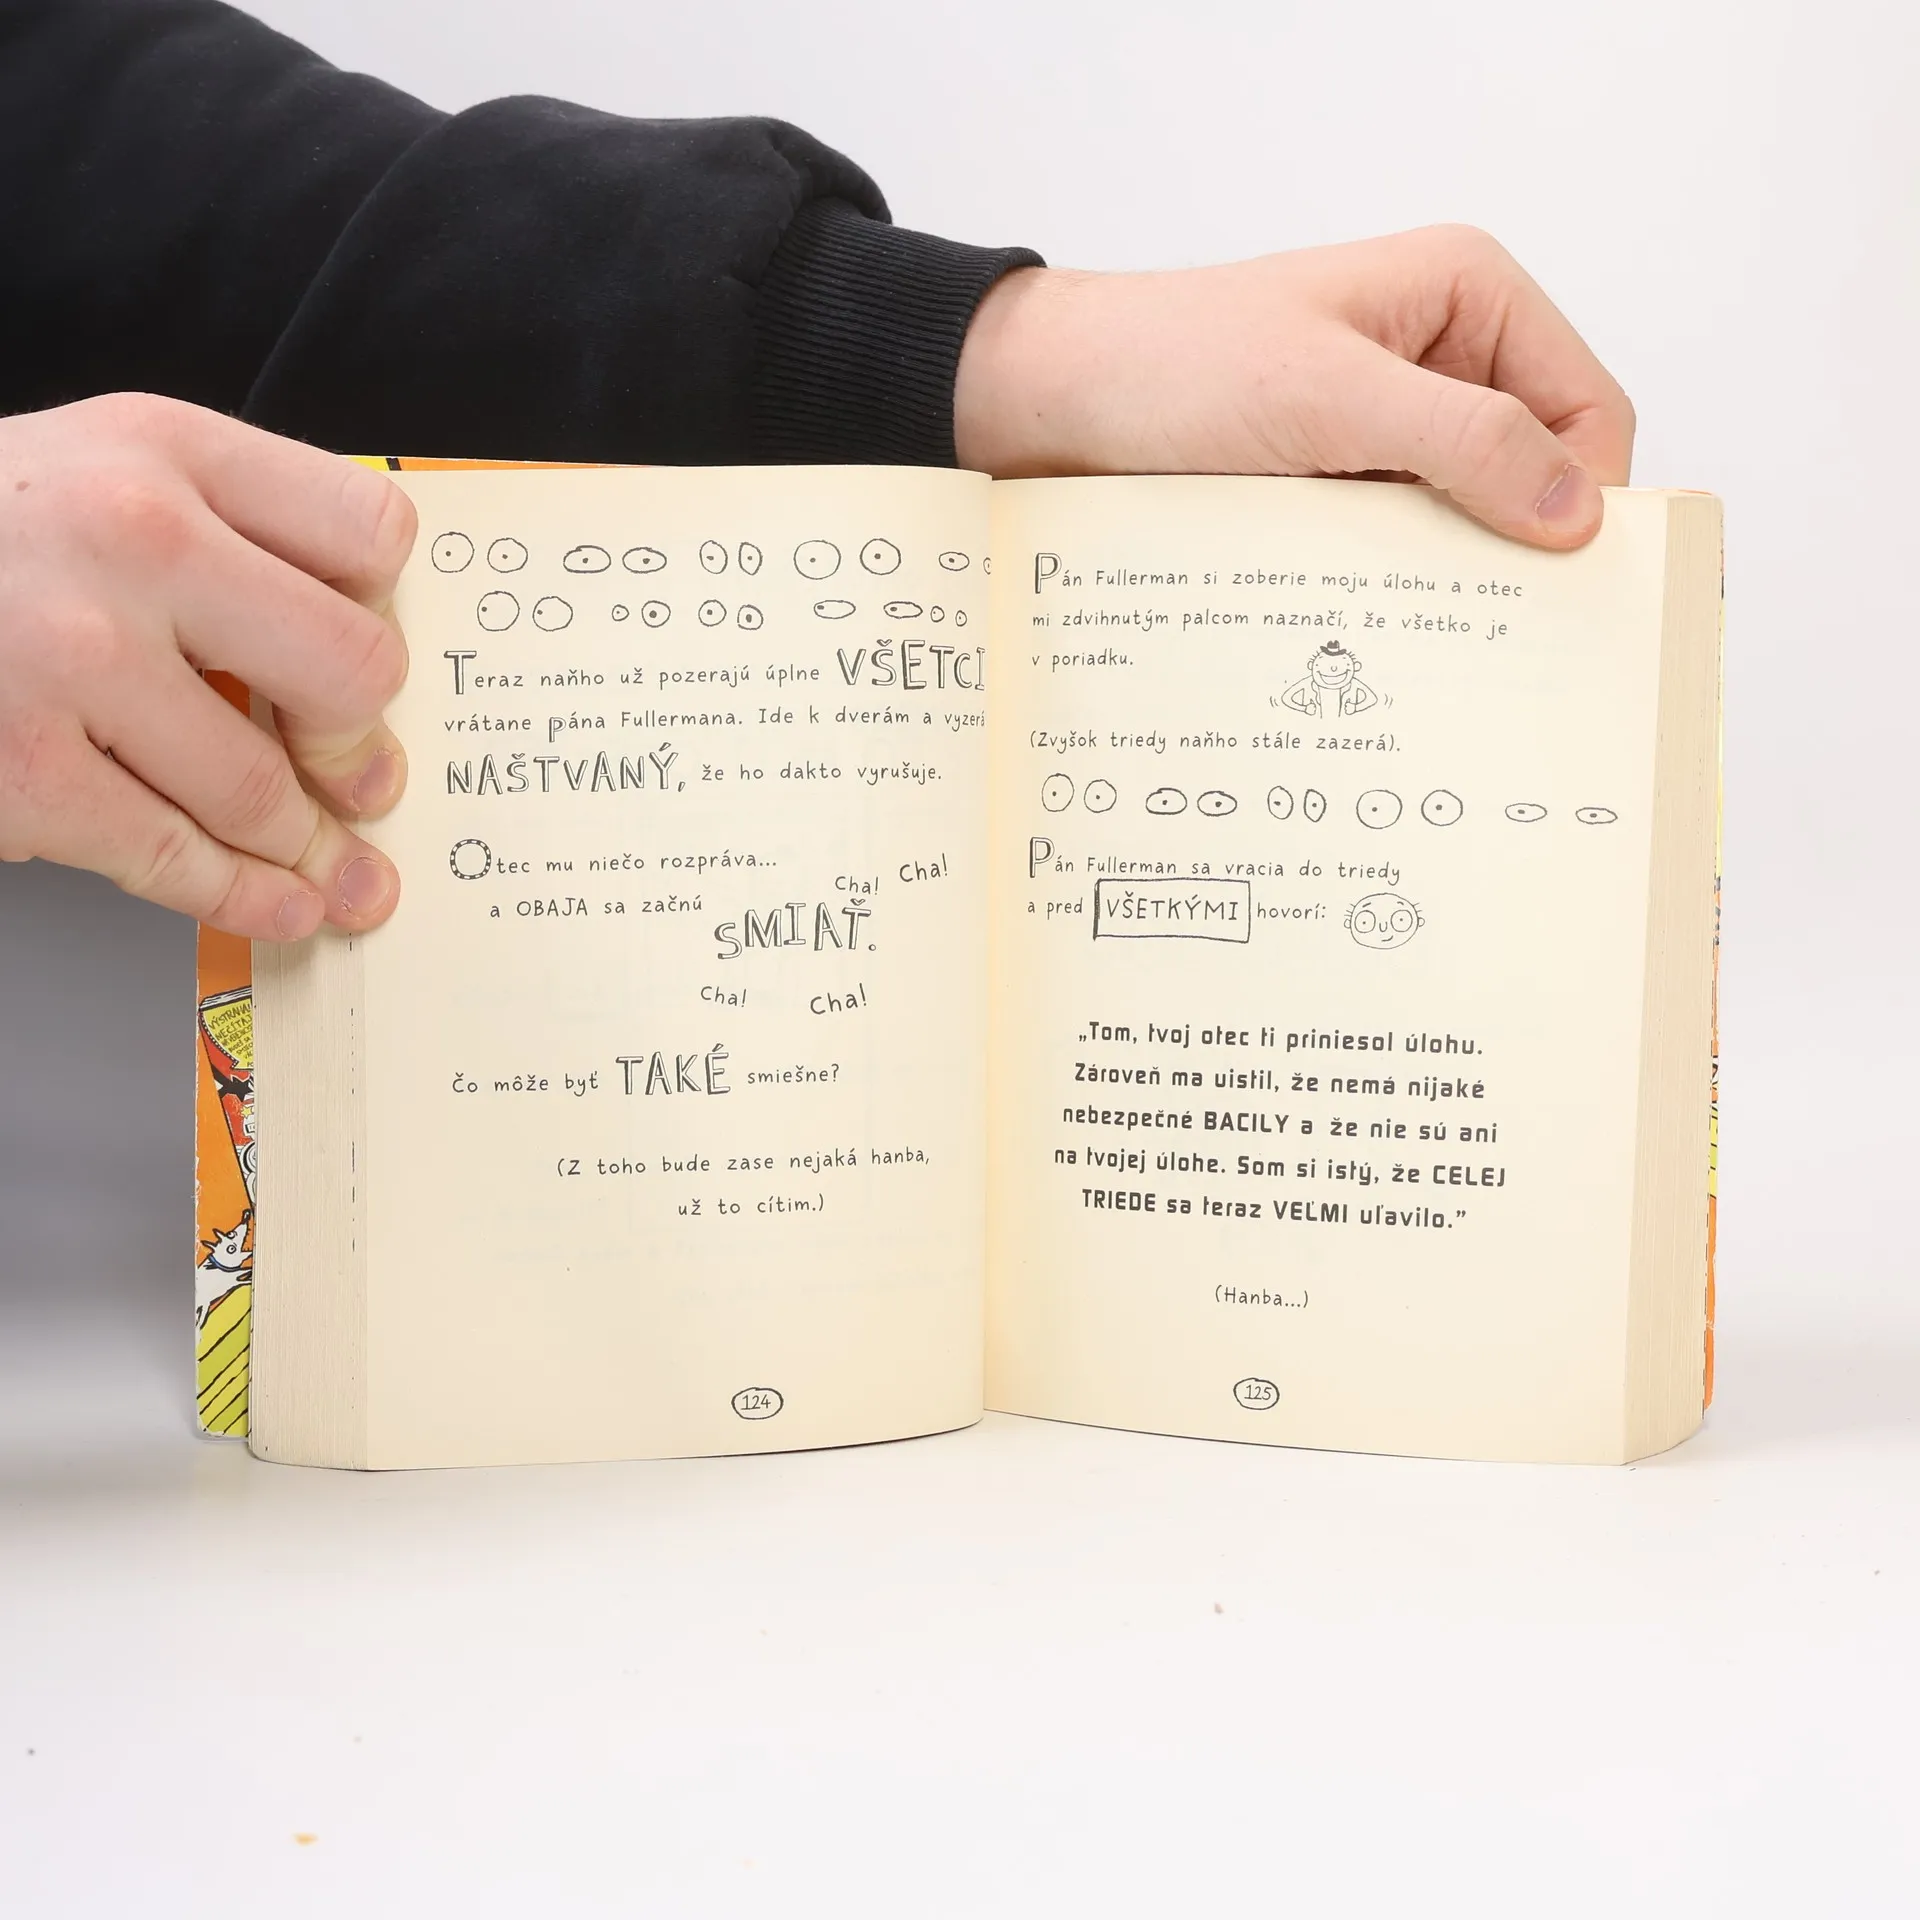 Teraz naňho už pozerajú úplne VŠETCI
vrátane pána Fullermana. Ide k dverám a vyzerá
NAŠTVANÝ, že ho dakto vyrušuje.
Otec mu niečo rozpráva...
a OBAJA sa začnú
SMIAŤ.
Cha! Cha!
Cha! Cha!
Čo môže byť TAKÉ smiešne?
(Z toho bude zase nejaká hanba,
už to cítim.)
124
Pán Fullerman si zoberie moju úlohu a otec
mi zdvihnutým palcom naznačí, že všetko je
v poriadku.
(Zvyšok triedy naňho stále zazerá).
Pán Fullerman sa vracia do triedy
a pred VŠETKÝMI hovorí:
„Tom, tvoj otec ti priniesol úlohu.
Zároveň ma uistil, že nemá nijaké
nebezpečné BACILY a že nie sú ani
na tvojej úlohe. Som si istý, že CELEJ
TRIEDE sa teraz VEĽMI uľavilo.”
(Hanba...)
125
VÝSTRAHA!